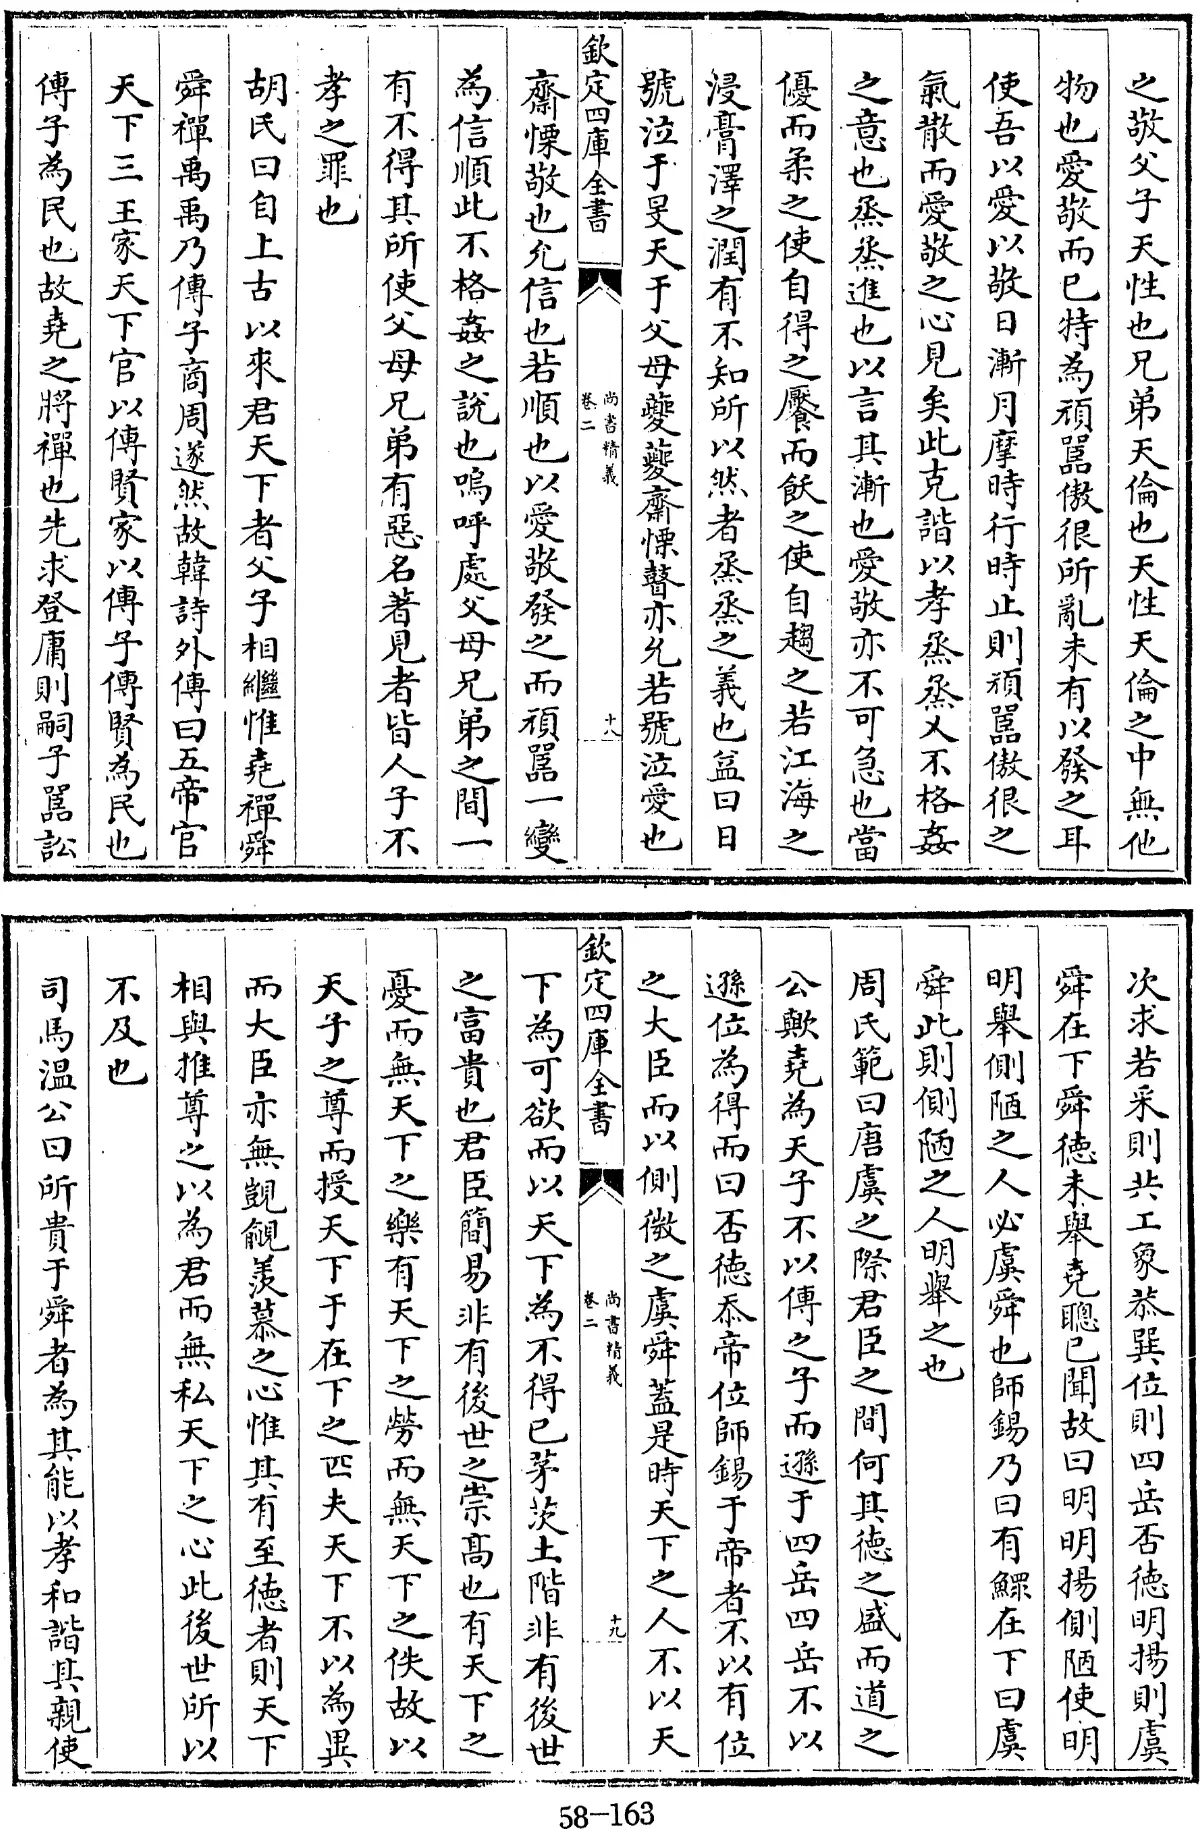 之敬父子天性也兄弟天倫也天性天倫之中無他
物也愛敬而已特為頑嚚傲很所亂未有以發之耳
使吾以愛以敬日漸月摩時行時止則頑嚚傲很之
氣散而愛敬之心見矣此克諧以孝烝烝乂不格姦
之意也烝烝進也以言其漸也愛敬亦不可急也當
優而柔之使自得之饜而飫之使自趨之若江海之
浸膏澤之潤有不知所以然者烝烝之義也益曰日
號泣于旻天于父母夔夔齋慄瞽亦允若號泣愛也
欽定四庫全書
尚書精義
卷二
十八
齋慄敬也允信也若順也以愛敬發之而頑嚚一變
為信順此不格姦之說也嗚呼處父母兄弟之間一
有不得其所使父母兄弟有惡名著見者皆人子不
孝之罪也
胡氏曰自上古以來君天下者父子相繼惟堯禪舜
舜禪禹禹乃傳子商周遂然故韓詩外傳曰五帝官
天下三王家天下官以傳賢家以傳子傳賢為民也
傳子為民也故堯之將禪也先求登庸則嗣子嚚訟
次求若采則共工象恭巽位則四岳否德明揚則虞
舜在下舜德未舉堯聰已聞故曰明明揚側陋使明
明舉側陋之人必虞舜也師錫乃曰有鰥在下曰虞
舜此則側陋之人明舉之也
周氏範曰唐虞之際君臣之間何其德之盛而道之
公歟堯為天子不以傳之子而遜于四岳四岳不以
遜位為得而曰否德忝帝位師錫于帝者不以有位
之大臣而以側微之虞舜蓋是時天下之人不以天
欽定四庫全書
尚書精義
卷二
十九
下為可欲而以天下為不得已茅茨土階非有後世
之富貴也君臣簡易非有後世之崇高也有天下之
憂而無天下之樂有天下之勞而無天下之佚故以
天子之尊而授天下于在下之匹夫天下不以為異
而大臣亦無覬覦羨慕之心惟其有至德者則天下
相與推尊之以為君而無私天下之心此後世所以
不及也
司馬溫公曰所貴于舜者為其能以孝和諧其親使
58-163